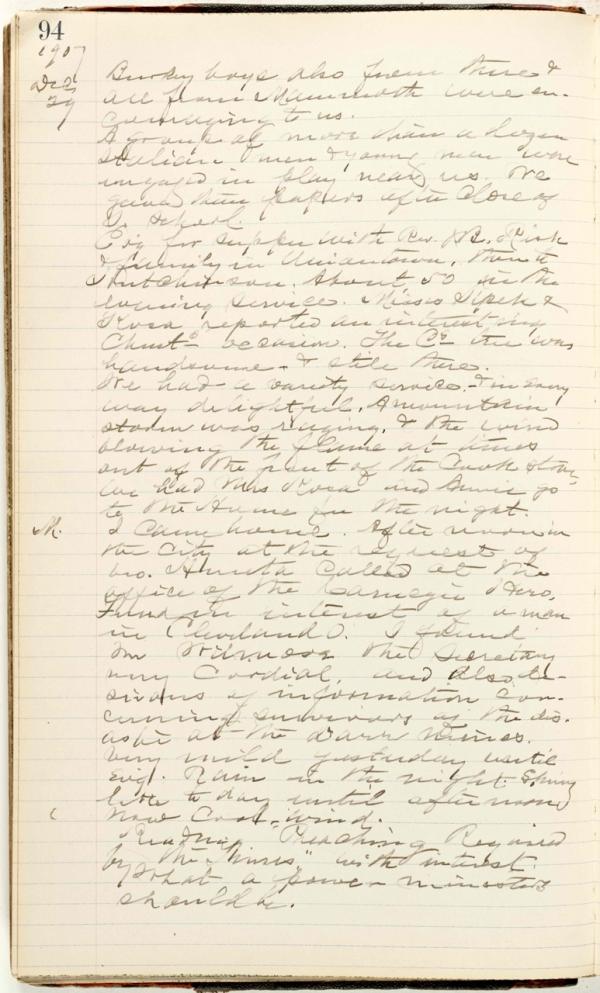 94
1907
Dec
29
boys also from there &
all from Mammoth were en-
couraging to us.
A group of more than a dozen
Italian men & young men were
engaged in play near us. We
gave them papers after close of
S. School.
Evg for supper with Rev. J.B. Risk
& family in Uniontown, then to
Hutchinson. About 50 in the
evening service. Misses Sipeh &
Rosa reported an interesting
Christ- occasion. The Cs tree was
handsome- & still there.
We had a variety service- & in every
way delightful. A mountain
storm was raging, & the wind
blowing the flame at times
out of the front of the Cook stove,
we had Miss Rosa and Annie go
to the Home for the night.
M.
I came home. Afternoon in
the city at the request of
bro. called at the
office of the Carnegie Hero,
Fund in interest of a man
in Cleveland O. I found
Mr Wilmot the Secretary
very Cordial, and also de-
sirous of information con-
cerning survivors of the dis-
aster at the Darr Mines.
Very mild yesterday until
Evg. Rain in the night. Spring
like to day until afternoon
now Cool- wind.
Reading "Preaching Required
by the Times," with interest.
What a power ministers
should be.